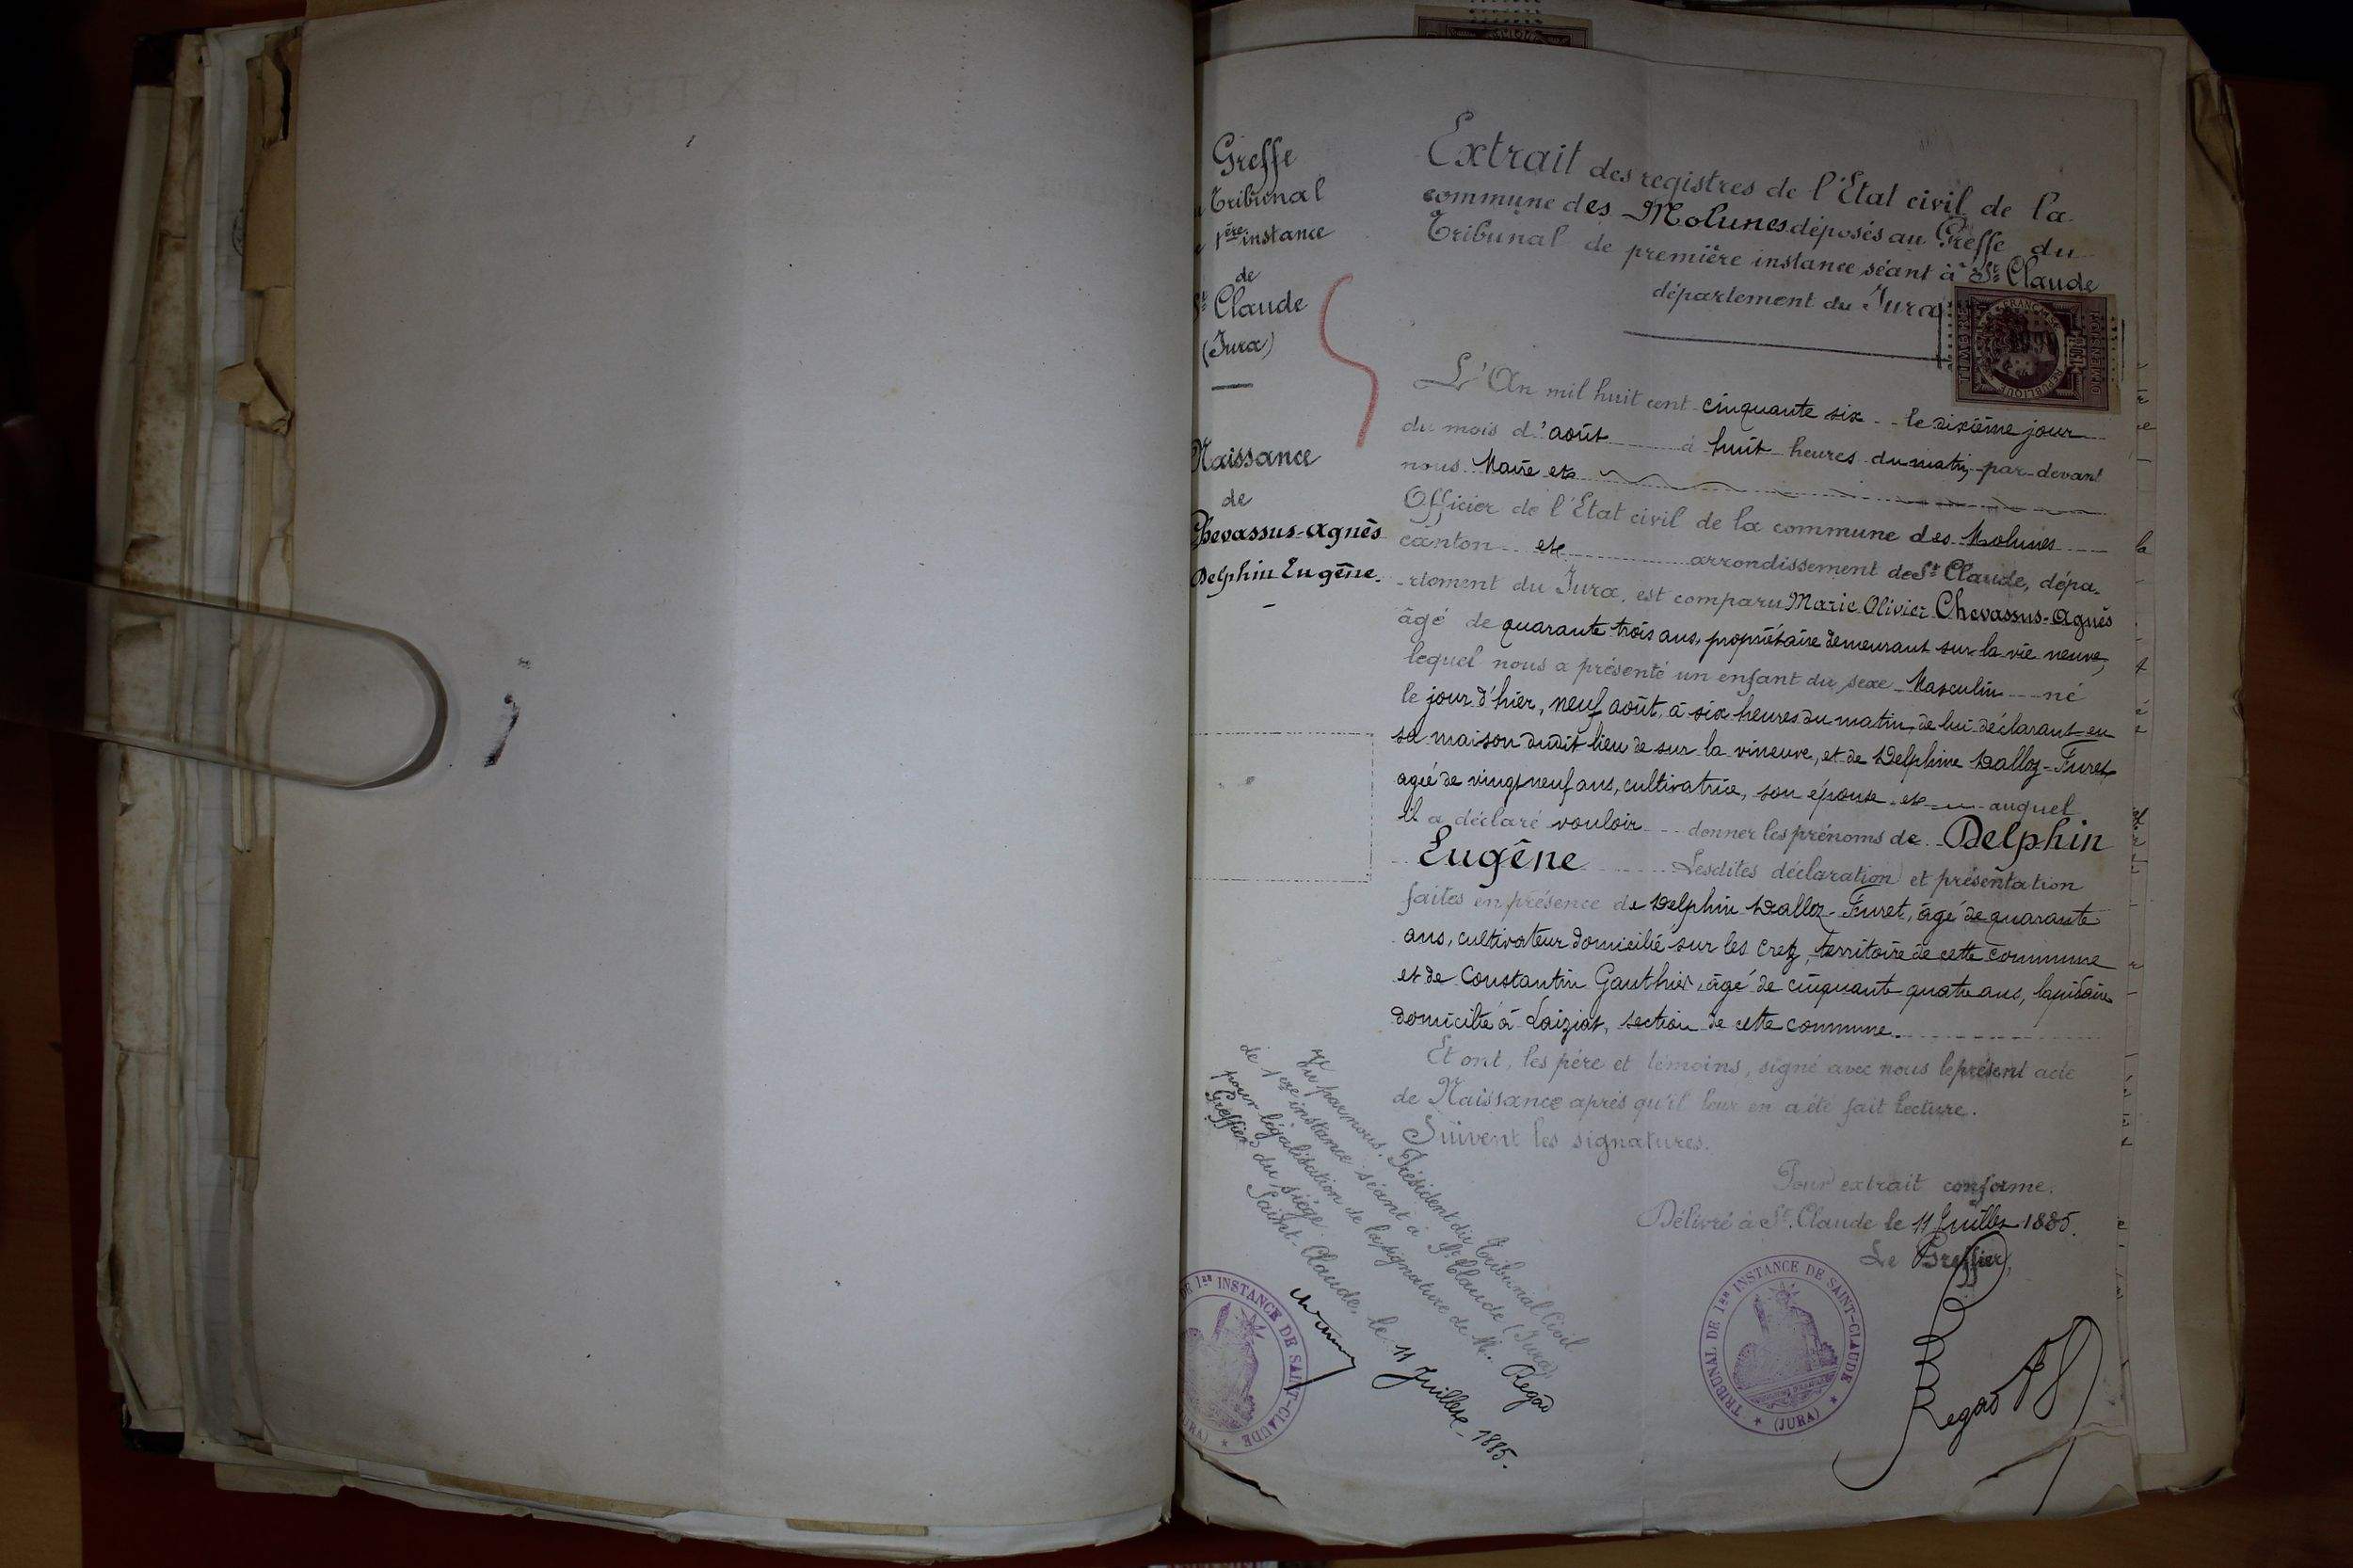 Greffe
Tribunal
1ère instance
de
St Claude
(Jura)
Naissance
de
Chevassus-Agnès
Delphin Eugène.
Extrait des registres de l'Etat civil de la
commune des Molunes déposés au Greffe du
Tribunal de première instance séant à St Claude
département du Jura
TIMBRE
REPUBLIQUE FRANÇAISE
DIMENSION
L'An mil huit cent cinquante six le dixième jour
du mois d'août à huit heures du matin, par-devant
nous Maire etc
Officier de l'Etat civil de la commune des Molunes
canton etc arrondissement de St Claude, dépa-
-rtement du Jura, est comparu Marie Olivier Chevassus-Agnès
âgé de quarante trois ans, propriétaire demeurant sur la vie neuve,
lequel nous a présenté un enfant du sexe Masculin né
le jour d'hier, neuf août, à six heures du matin, de lui déclarant en
sa maison dudit lieu de sur la vineuve, et de Delphine Dalloz-Furet,
agée de vingt neuf ans, cultivatrice, son épouse etc auquel
il a déclaré vouloir donner les prénoms de Delphin
Eugène Lesdites déclaration et présentation
faites en présence de Delphin Dalloz-Furet, âgé de quarante
ans, cultivateur domicilié sur les Cretz, territoire de cette commune
et de Constantin Gauthier, âgé de cinquante quatre ans, lapidaire
domicilié à Laiziat, section de cette commune.
Et ont, les père et témoins, signé avec nous le présent acte
de Naissance après qu'il leur en a été fait lecture.
Suivent les signatures.
Pour extrait conforme.
Délivré à St. Claude le 11 Juillet 1885.
Le Greffier,
Regad
TRIBUNAL DE 1re INSTANCE DE SAINT-CLAUDE
(JURA)
Vu par nous, Président du Tribunal Civil
de 1ère instance séant à St Claude (Jura)
pour légalisation de la signature de M. Regad
Greffier du siège.
Saint-Claude, le 11 Juillet 1885.
DE 1re INSTANCE DE SAINT-CLAUDE